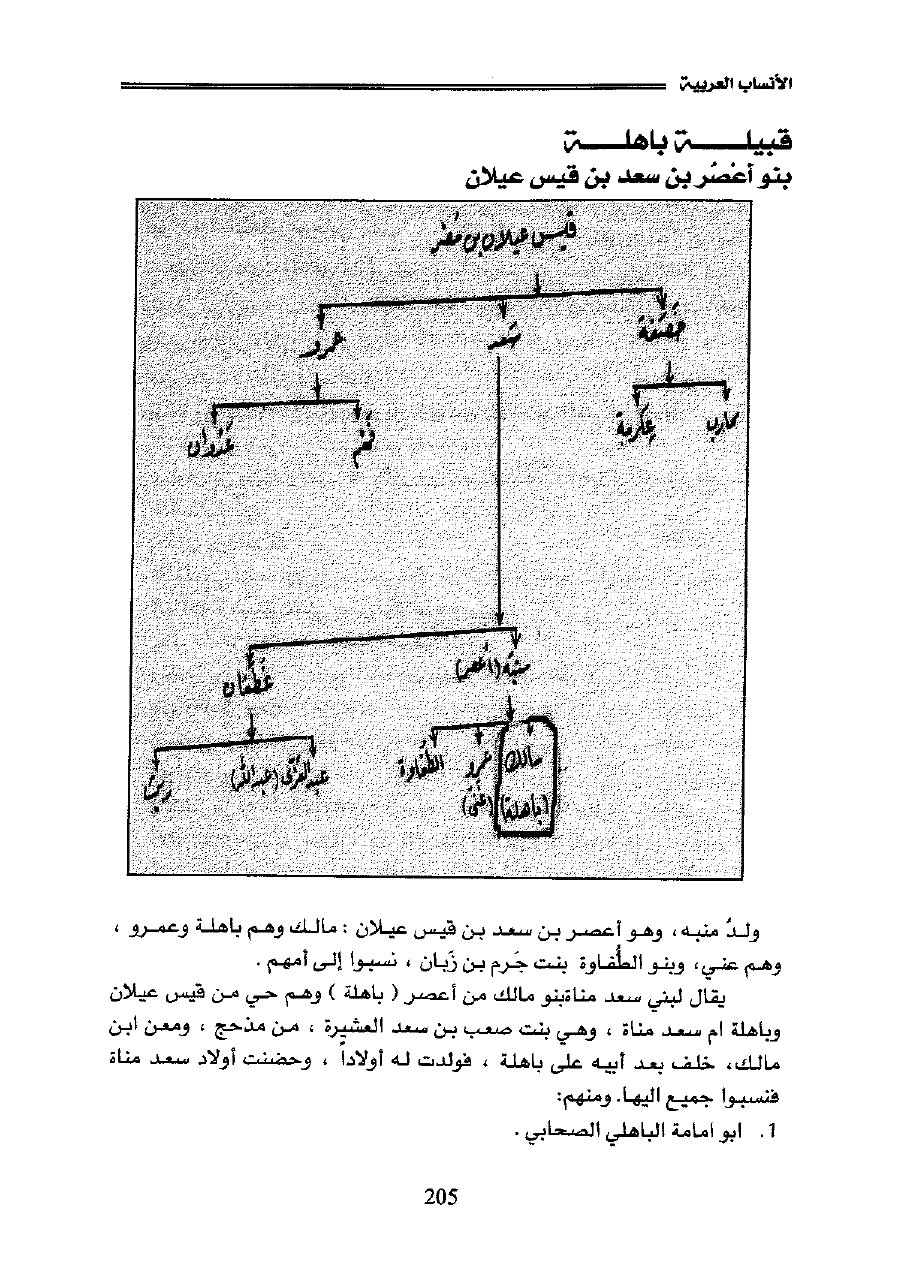 الأنساب العربية
قبيلـــــة باهلـــة
بنو أعْصُر بن سعد بن قيس عيلان
قَيس عيلان بن مُضَر
خَصَفَة
سَعد
عمرو
محارب
عِكرمة
فَهْم
عَدْوان
منبّه (أعْصُر)
غَطَفان
مالك
عمرو
الطُفاوة
عبدالعُزّى (عبدالله)
ريث
(باهلة)
(غَنى)
ولدُ منبه، وهو أعصر بن سعد بن قيس عيلان : مالك وهم باهلة وعمرو ،
وهم غني، وبنو الطُفاوة بنت جَرم بن زَبان ، نسبوا إلى أمهم .
يقال لبني سعد مناةبنو مالك من أعصر ( باهلة ) وهم حي من قيس عيلان
وباهلة ام سعد مناة ، وهي بنت صعب بن سعد العشيرة ، من مذحج ، ومعن ابن
مالك، خلف بعد أبيه على باهلة ، فولدت له أولاداً ، وحضنت أولاد سعد مناة
فنسبوا جميع اليها. ومنهم:
1. ابو امامة الباهلي الصحابي .
205